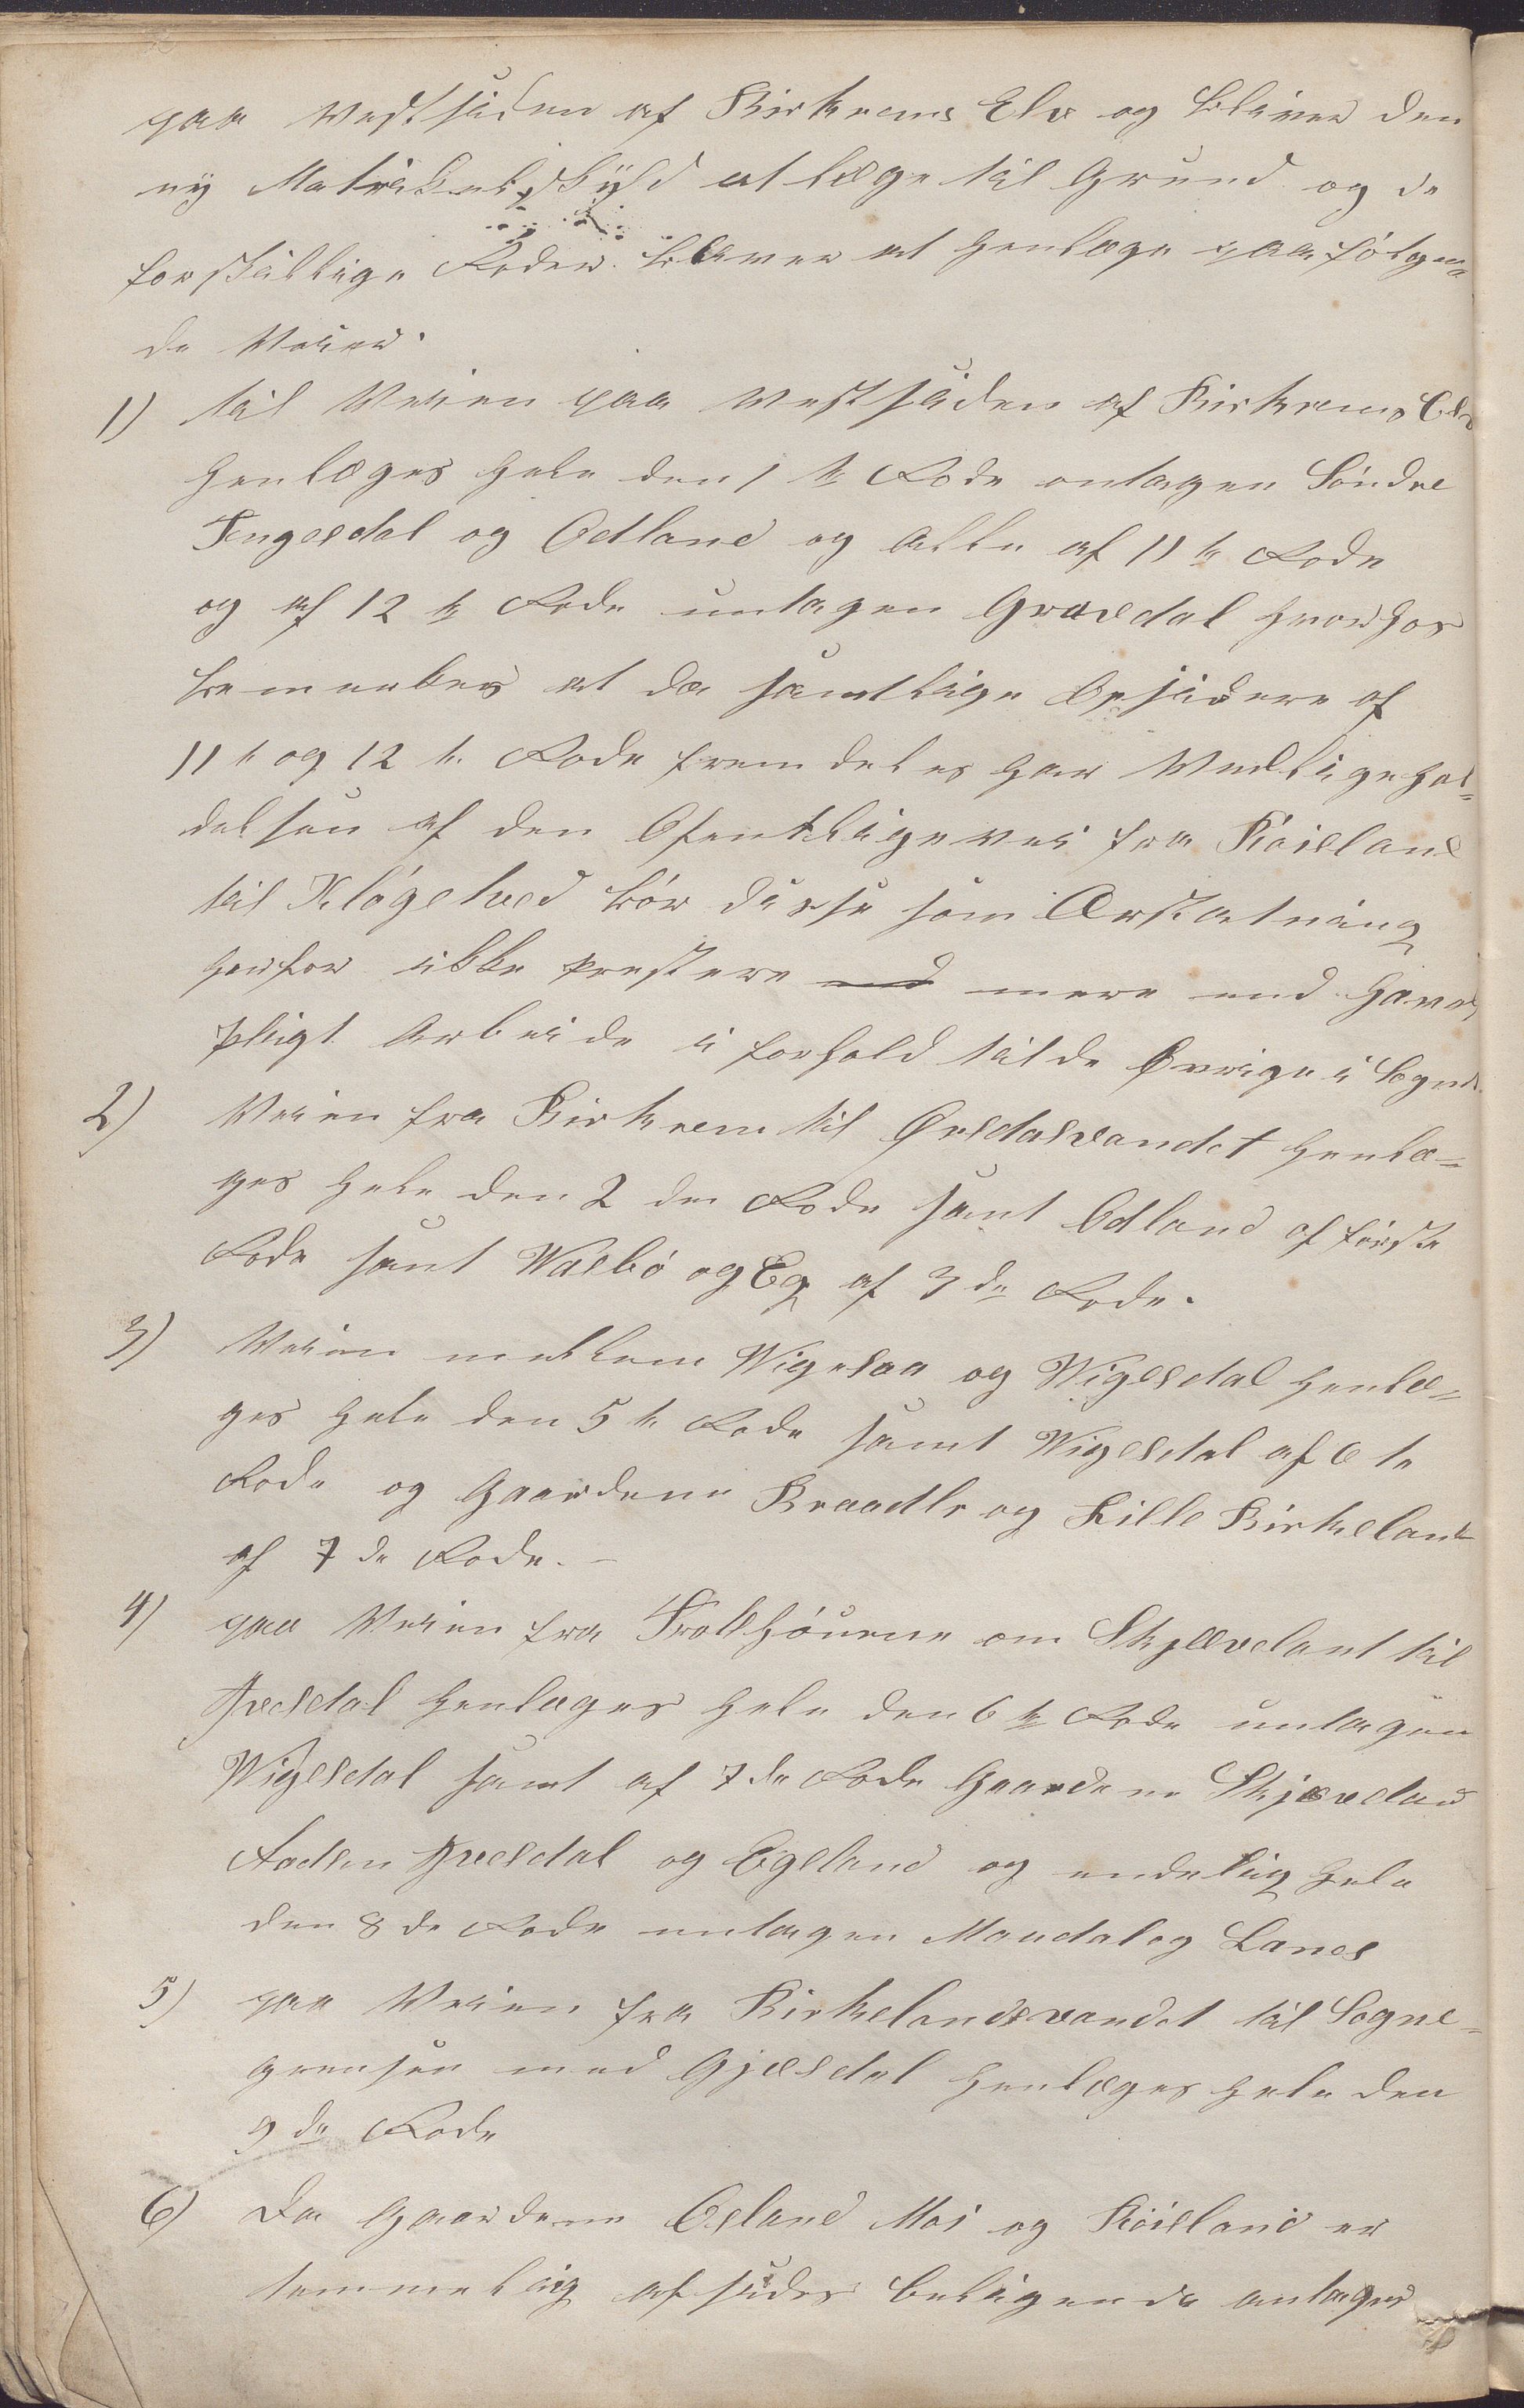 paa Vestsiden af Birkrems Elv og bliver den
ny Matrikulskyld at læge til Grund og de
forskjællige Roder bliver at henlæge paa følgen-
de Veier.
1) til Veien paa Vestsiden af Birkrems Elv
henlæges hele den 1 te Rode untagen Søndre
Tengesdal og Odland og Alle af 11 te Rode
og af 12 te Rode untagen Gravdal hvorhos
bemærkes at da samtlige Opsidere af
11 te og 12 te Rode fremdeles har Vedligehol-
delsen af den Ofentligevei fra Røiseland
til Kløgetved bør disse som Ærstatning
herfor ikke prestere mere end Havd
pligt Arbeide i forhold til de Øvrige i Sognet.
2) Veien fra Birkrem til Ørsdalsvandet henlæ-
ges hele den 2 den Rode samt Odland af første
Rode samt Wasbø og Eg af 3 de Rode.
3) Veien mellem Vigesaa og Vigesdal henlæ-
ges hele den 5 te Rode samt Vigesdal af 6 te
Rode og Gaardene Braadli og Lille Birkeland
af 7 de Rode. -
4) paa Veien fra Troldhøuene om Skjævelant til
Ivesdal henlæges hele den 6 te Rode untagen
Vigesdal samt af 7 de Rode Gaardene Skjæveland
Aadsen Ivesdal og Egeland og endelig hele
den 8 de Rode untagen Maudal og Lanes
5) paa Veien fra Birkelandsvandet til Sogne-
grensen med Gjæsdal henlæges hele den
9 de Rode
6) Da Gaardene Øsland Moi og Røisland er
temmelig afsides beligende antages